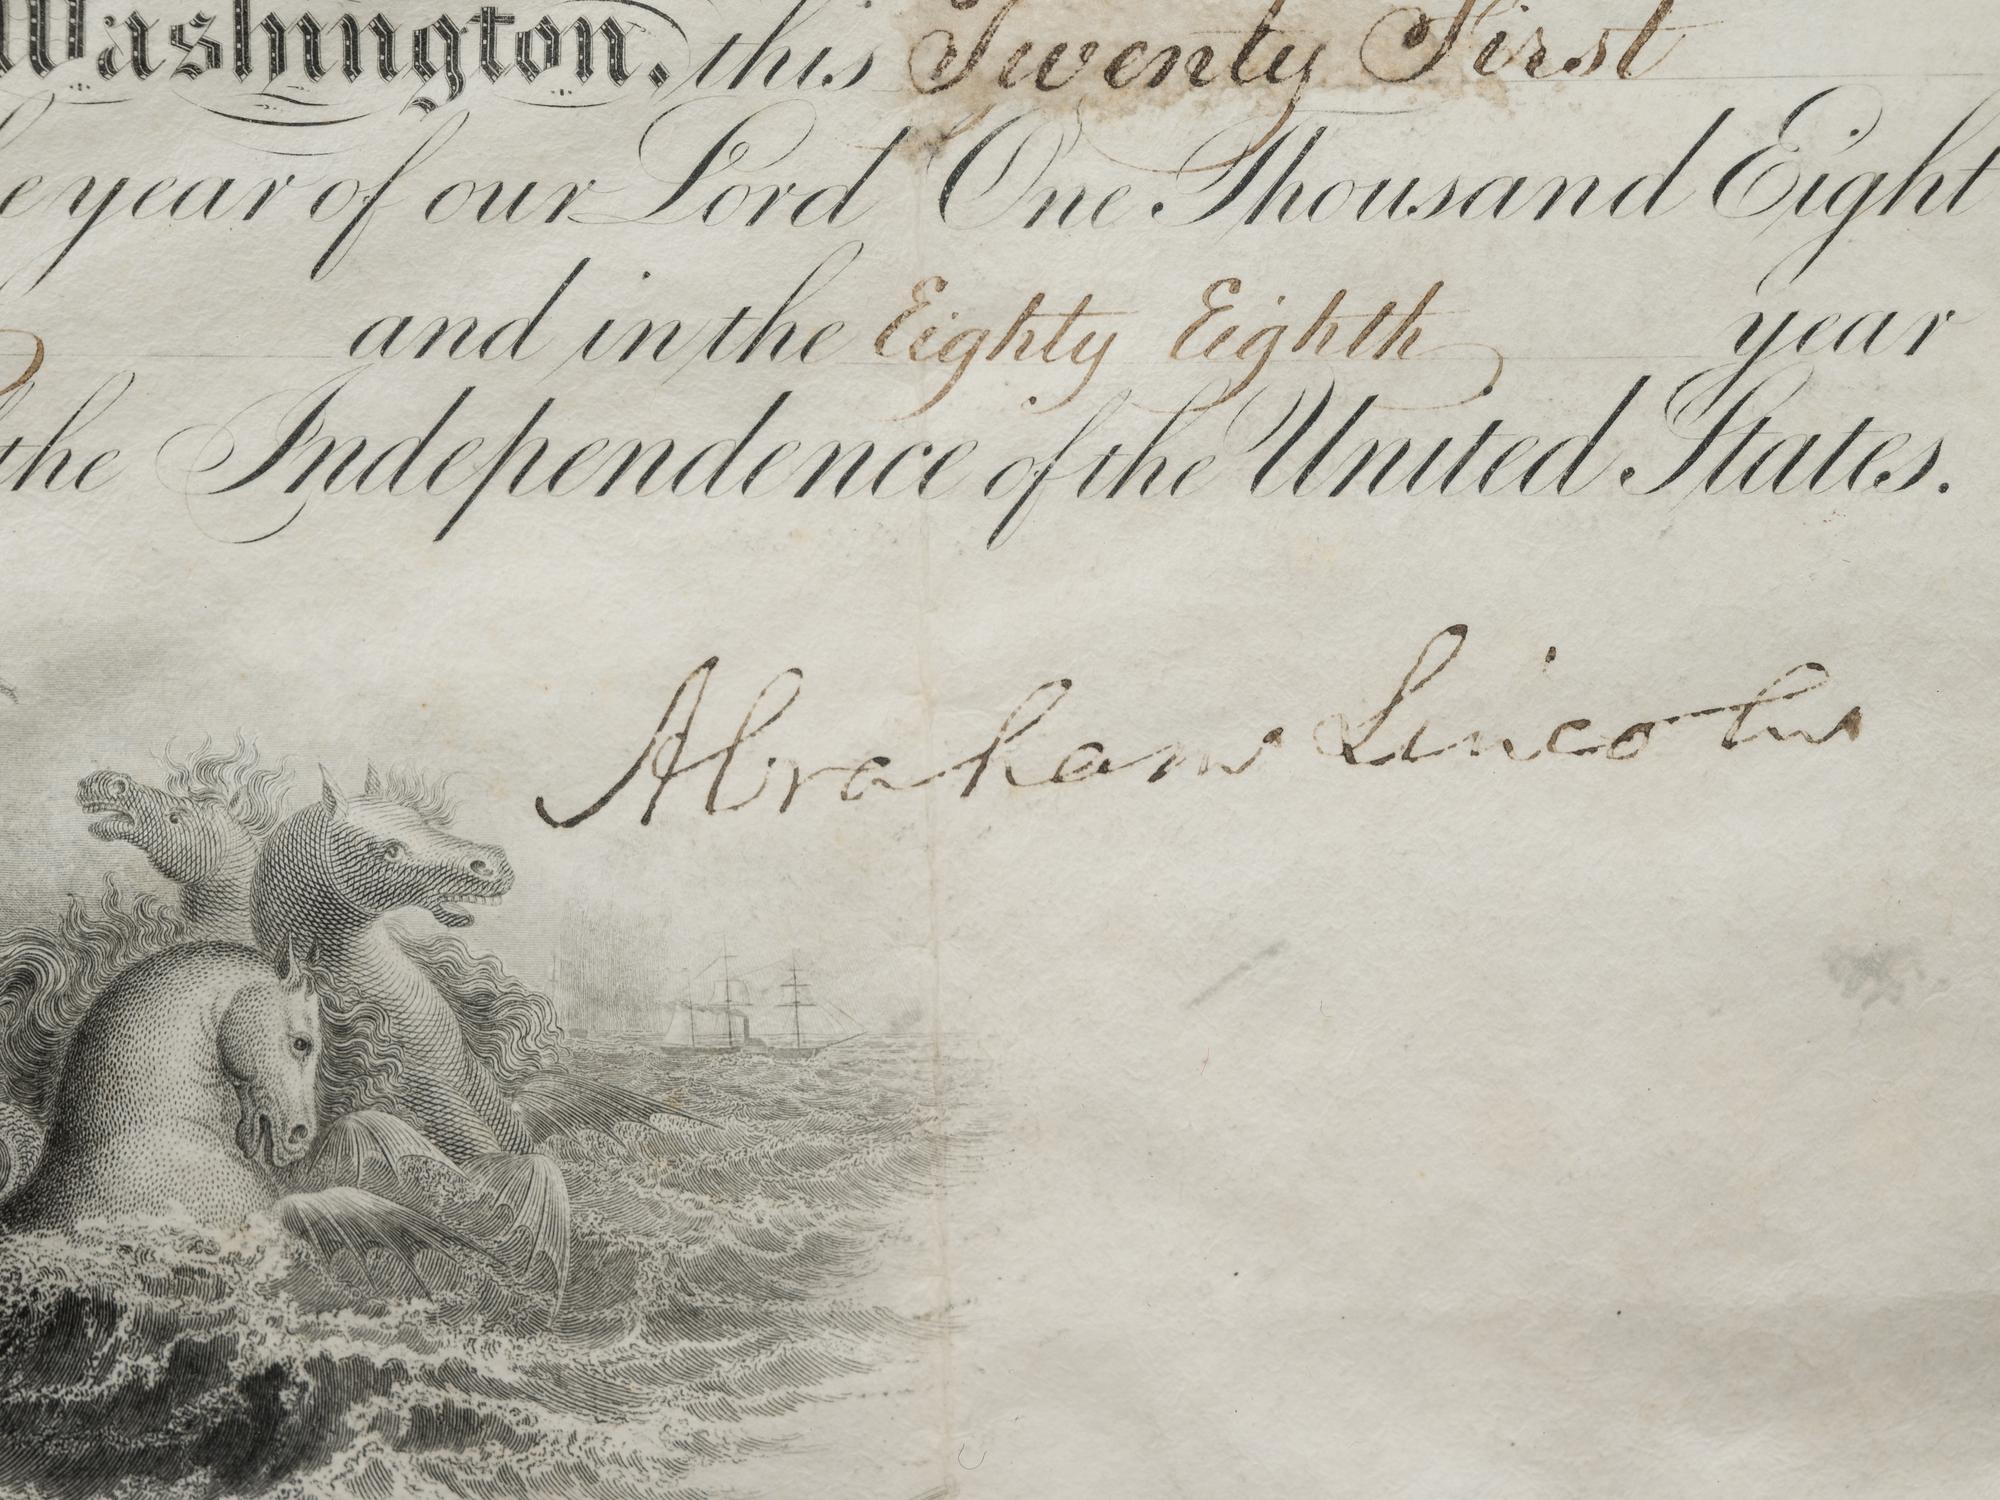 Washington, this Twenty First
e year of our Lord One Thousand Eight
and in the Eighty Eighth year
the Independence of the United States.
Abraham Lincoln